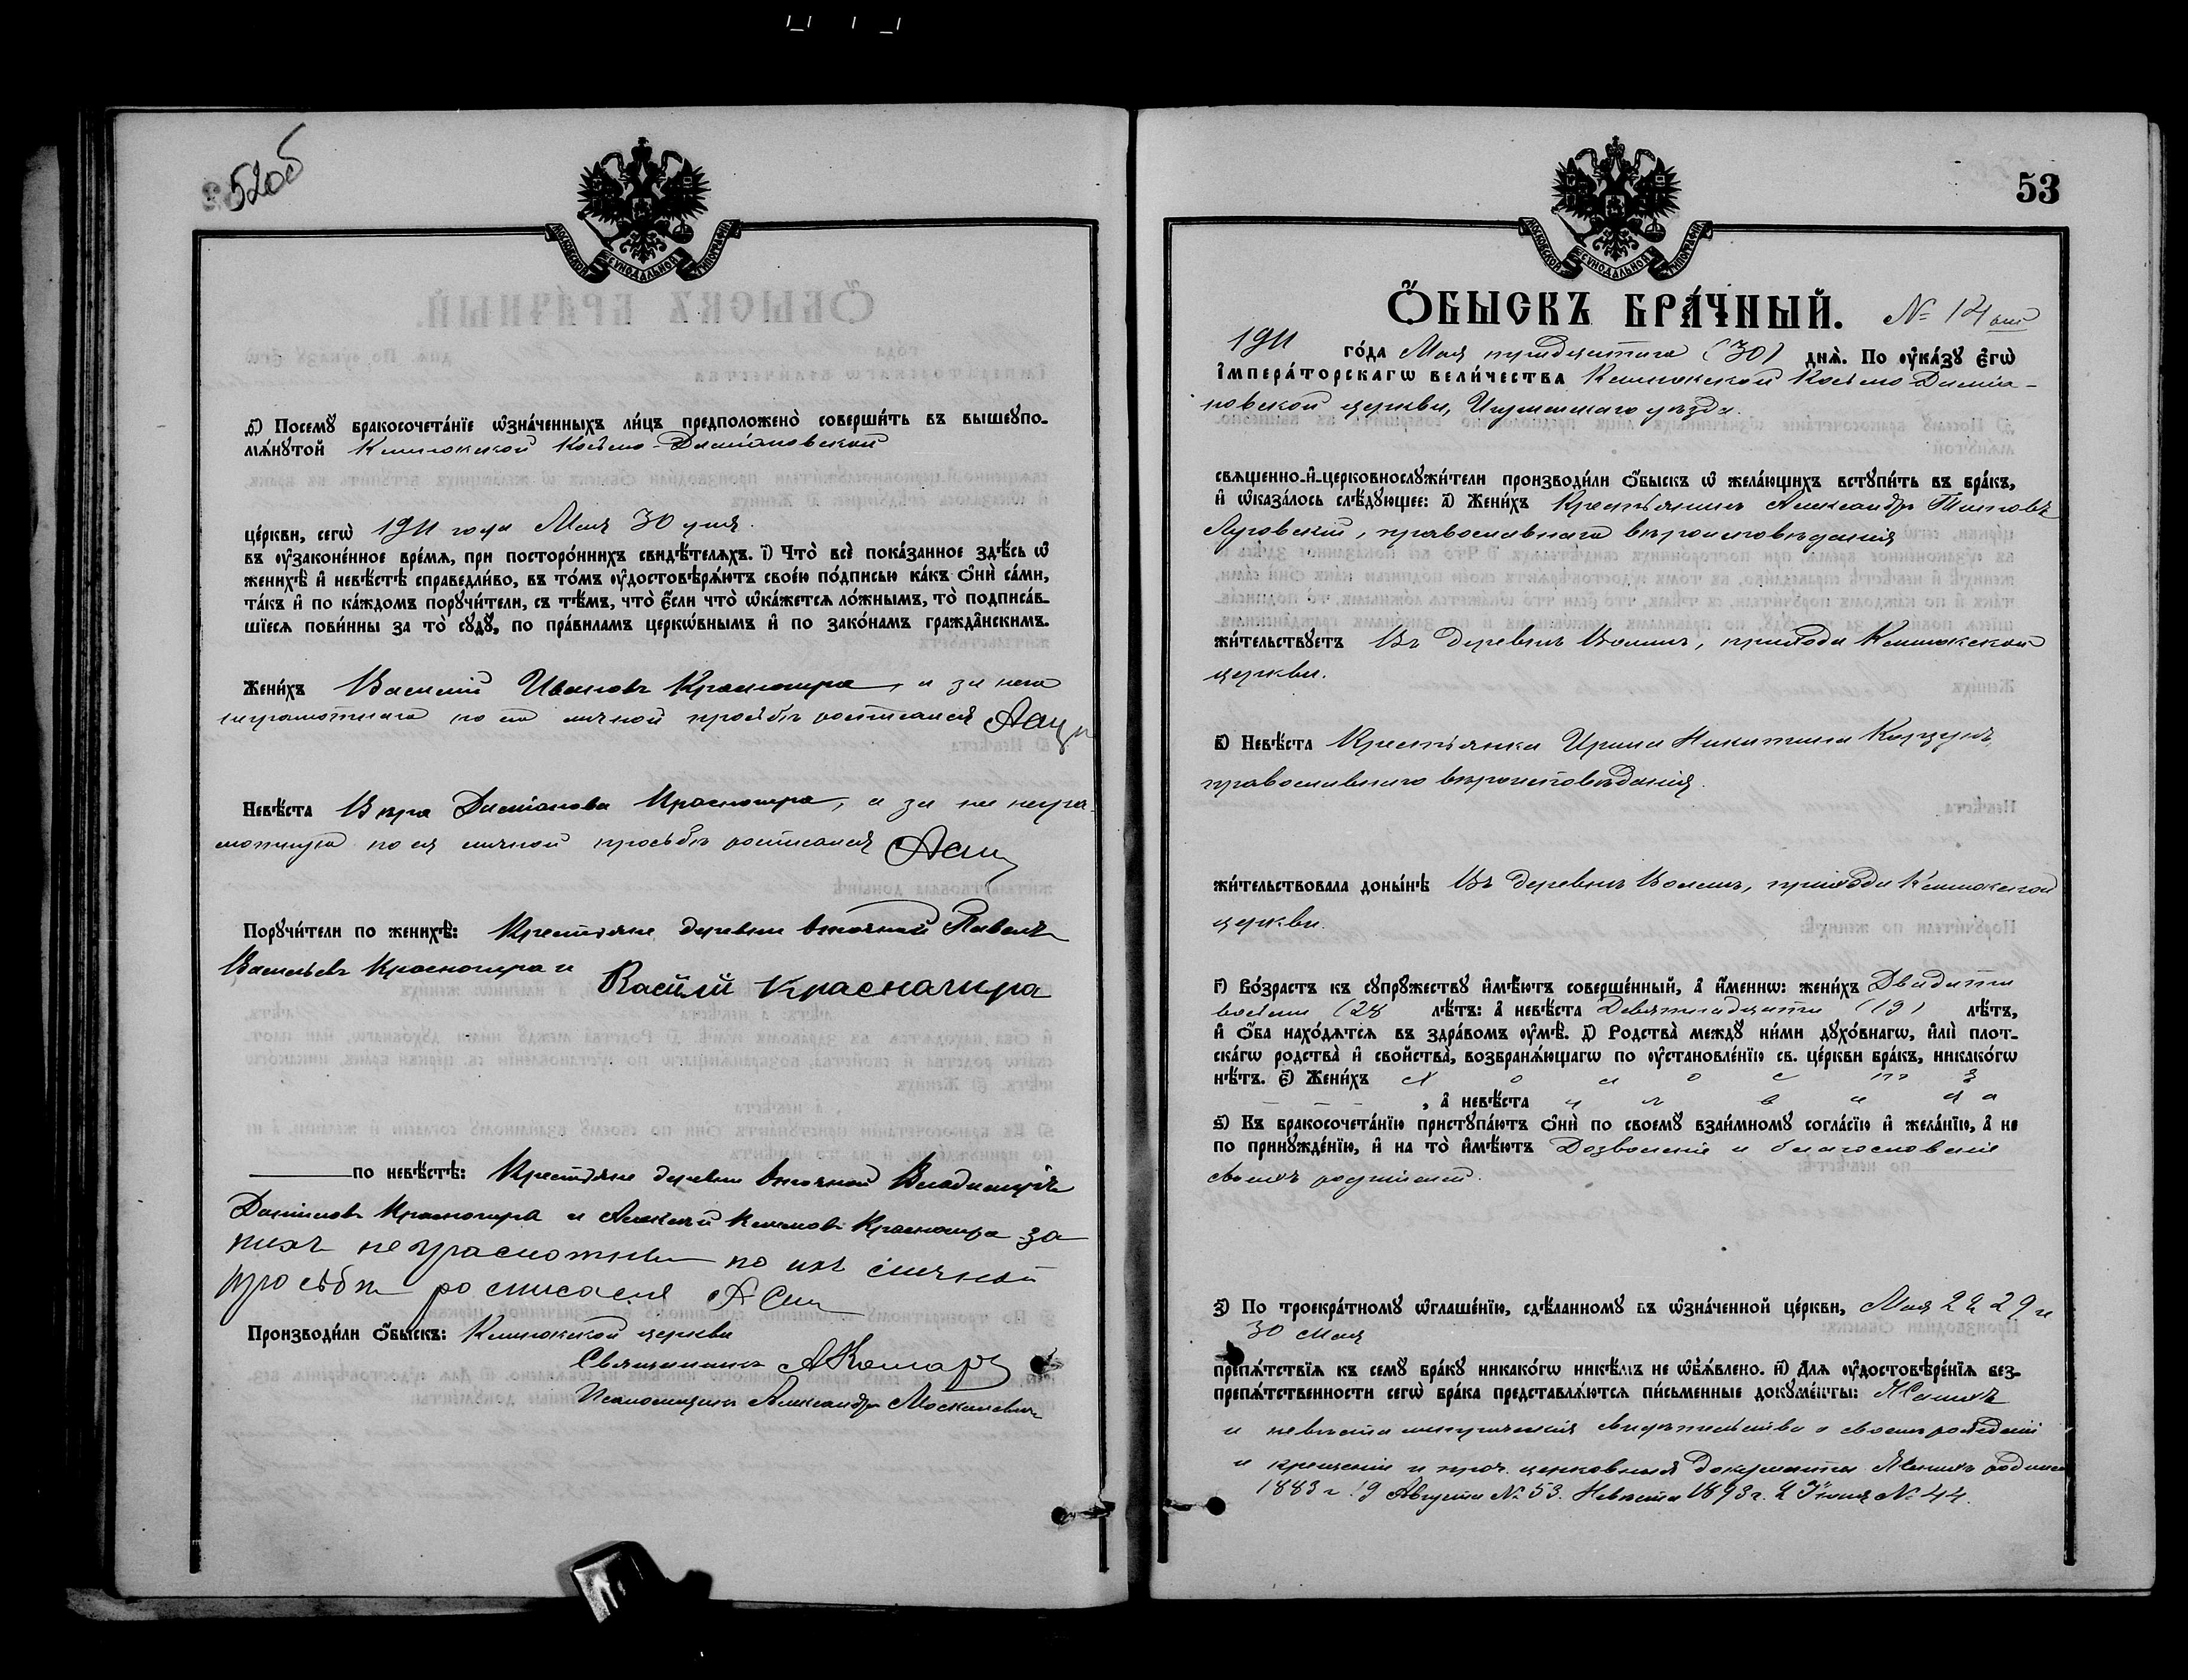 52об
МОСКОВСКОЙ СѴНОДАЛЬНОЙ ТИПОГРАФІИ
д҃і) Посемꙋ̀ бракосочета́нїе ѡ҆зна́ченныхъ ли́цъ предположено̀ соверши́ть въ вышеꙋпо-
мѧ́нꙋтой Клинокской Косьмо-Даміановской
це́ркви, сегѡ̀ 1911 года Мая 30 дня.
въ ᲂу҆законе́нное вре́мѧ, при посторо́ннихъ свидѣ́телѧхъ. і҃) Что̀ всѐ пока́занное здѣ́сь ѡ҆
женихѣ̀ и҆ невѣ́стѣ справедли́во, въ то́мъ ᲂу҆достовѣрѧ́ютъ свое́ю по́дписью ка́къ ѻ҆нѝ са́ми,
та́къ и҆ по ка́ждомъ порꙋчи́тели, съ тѣ́мъ, что̀ є҆́сли что̀ ѡ҆ка́жетсѧ ло́жнымъ, то̀ подписа́в-
шїесѧ пови́нны за то̀ сꙋдꙋ̀, по пра́виламъ церкѡ́внымъ и҆ по зако́намъ гражда̂нскимъ.
Жени́хъ Василій Ивановъ Красногира, и за него
неграмотнаго по его личной просьбѣ росписался
Невѣ́ста Вѣра Даміанова Красногира, а за нее негра-
мотную по ея личной просьбѣ росписался
Порꙋчи́тели по женихѣ̀: Крестьяне деревни Павелъ
Васильевъ Красногира и Васілій Красначира
по невѣ́стѣ: Крестьяне деревни Владимиръ
Даниловъ Красногира и Алексѣй Климовъ Красногира за
нихъ неграмотныхъ по ихъ личной
просьбѣ росписался
Производи́ли ѻ҆́быскъ: Клинокской церкви
Священникъ А Комар
Псаломщикъ Александръ Москалевичъ
53
МОСКОВСКОЙ СѴНОДАЛЬНОЙ ТИПОГРАФІИ
Ѻ҆́БЫСКЪ БРА́ЧНЫЙ. № 14
1911 го́да Мая тридцатаго (30) днѧ̀. По ᲂу҆ка́зꙋ є҆гѡ̀
і҆мпера́торскагѡ вели́чества Клинокской Косьмо-Даміа-
новской церкви, Игуменскаго уѣзда.
свѧще́нно-и҆-церковнослꙋжи́тели производи́ли ѻ҆́быскъ ѡ҆ жела́ющихъ встꙋпи́ть въ бра́къ,
и҆ ѡ҆каза́лось слѣ́дꙋющее: а҃) Жени́хъ Крестьянинъ Александръ Титовъ
Луговскій, православнаго вѣроисповѣданія
жи́тельствꙋетъ Въ деревнѣ, прихода Клинокской
церкви.
в҃) Невѣ́ста Крестьянка Ирина Никитина Корзунъ,
православнаго вѣроисповѣданія.
жи́тельствовала доны́нѣ Въ деревнѣ, прихода Клинокской
церкви.
г҃) Во́зрастъ къ сꙋпрꙋ́жествꙋ и҆мѣ́ютъ соверше́нный, а҆ и҆́меннѡ: жени́хъ Двадцати
восьми (28 лѣ́тъ: а҆ невѣ́ста Девятнадцати (19) лѣ́тъ,
и҆ ѻ҆́ба нахо́дѧтсѧ въ здра́вомъ ᲂу҆мѣ̀. д҃) Родства̀ междꙋ̀ ни́ми дꙋхо́внагѡ, и҆лѝ плот-
ска́гѡ родства̀ и҆ свойства̀, возбранѧ́ющагѡ по ᲂу҆становле́нїю св. це́ркви бра́къ, никако́гѡ
нѣ́тъ. є҃) Жени́хъ х о л о с т ъ
, а҆ невѣ́ста д ѣ в и ц а
ѕ҃) Къ бракосочета́нїю пристꙋпа́ютъ ѻ҆нѝ по своемꙋ̀ взаи́мномꙋ согла́сїю и҆ жела́нїю, а҆ не
по принꙋжде́нїю, и҆ на то̀ и҆мѣ́ютъ Дозволеніе и благословеніе
своихъ родителей.
з҃) По троекра́тномꙋ ѡ҆глаше́нїю, сдѣ́ланномꙋ въ ѡ҆зна́ченной це́ркви, Мая 22 29 и
30 Мая
препѧ́тствїѧ къ семꙋ̀ бра́кꙋ никако́гѡ никѣ́мъ не ѡ҆б̾ѧ́влено. и҃) Длѧ ᲂу҆достовѣре́нїѧ без-
препѧ́тственности сегѡ̀ бра́ка представлѧ́ютсѧ пи́сьменные докꙋме́нты: Женихъ
и невѣста метрическія свидѣтельства о своемъ рожденіи
и крещеніи и проч. церковные документы Женихъ родился
1883 г. 19 Августа № 53. Невѣста 1893 г. 2 Іюня № 44.